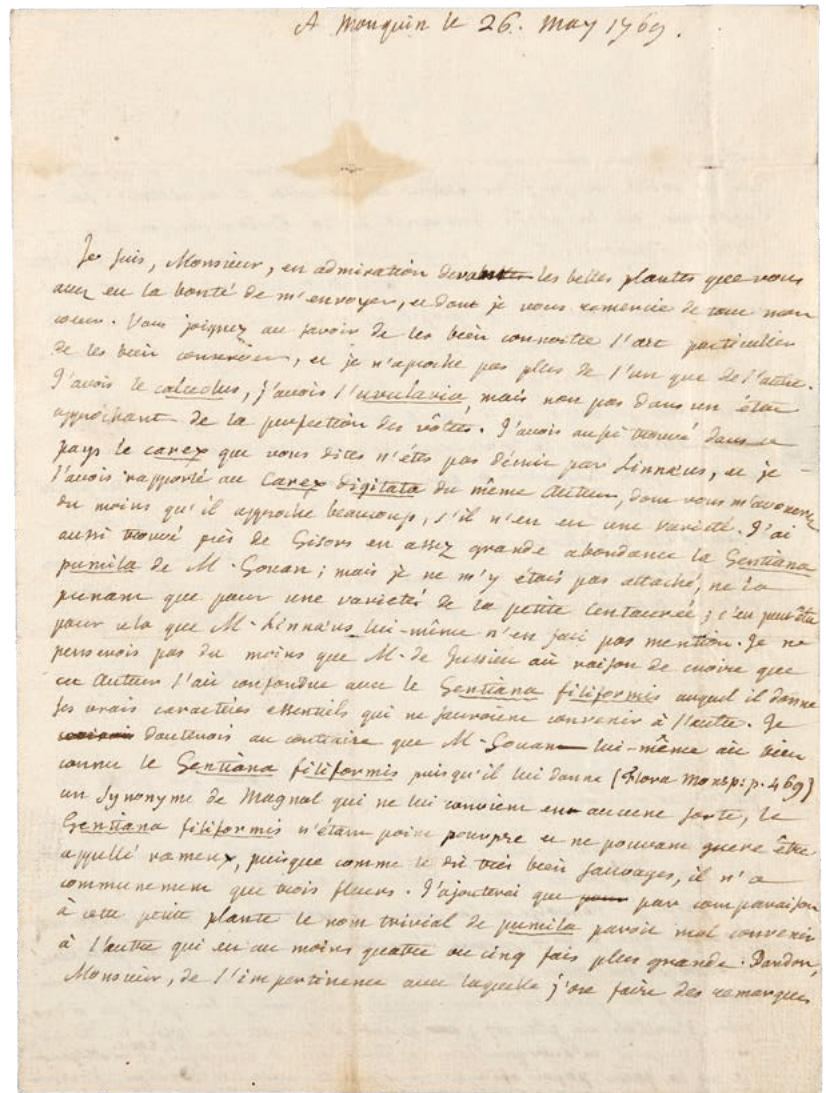 A Monquin le 26. May 1769.
Je suis, Monsieur, en admiration devant les belles plantes que vous
avez eu la bonté de m'envoyer, et dont je vous remercie de tout mon
coeur. Vous joignez au savoir de les bien connoitre l'art particulier
de les bien conserver, et je n'aproche pas plus de l'un que de l'autre.
J'avois le calceolus, j'avois l'uvularia, mais non pas dans un état
approchant de la perfection des vôtres. J'avois aussi trouvé dans ce
pays le carex que vous dites n'être pas décrit par Linnæus, et je
l'avois rapporté au Carex digitata du même Auteur, dont vous m'avouerez
du moins qu'il approche beaucoup, s'il n'en est une variété. J'ai
aussi trouvé près de Gisors en assez grande abondance la Gentiana
pumila de M. Gouan; mais je ne m'y étois pas attaché, ne la
prenant que pour une varieté de la petite Centaurée; c'est peut-être
pour cela que M. Linnæus lui-même n'en fait pas mention. Je ne
pensois pas du moins que M. de Jussieu ait raison de croire que
cet Auteur l'ait confondue avec le Gentiana filiformis auquel il donne
ses vrais caractéres essentiels qui ne sauroient convenir à l'autre. Je
doutenois au contraire que M. Gouan lui-même ait bien
connu le Gentiana filiformis puisqu'il lui donne (Flora Monsp: p. 469)
un Synonyme de Magnol qui ne lui convient en aucune sorte, le
Gentiana filiformis n'étant point pourpre et ne pouvant guere être
appellé rameux, puisque comme le dit très bien Sauvages, il n'a
communement que trois fleurs. J'ajouterai que par comparaison
à cette petite plante le nom trivial de pumila paroit mal convenir
à l'autre qui est au moins quatre ou cinq fois plus grande. Pardon,
Monsieur, de l'impertinence avec laquelle j'ose faire des remarques